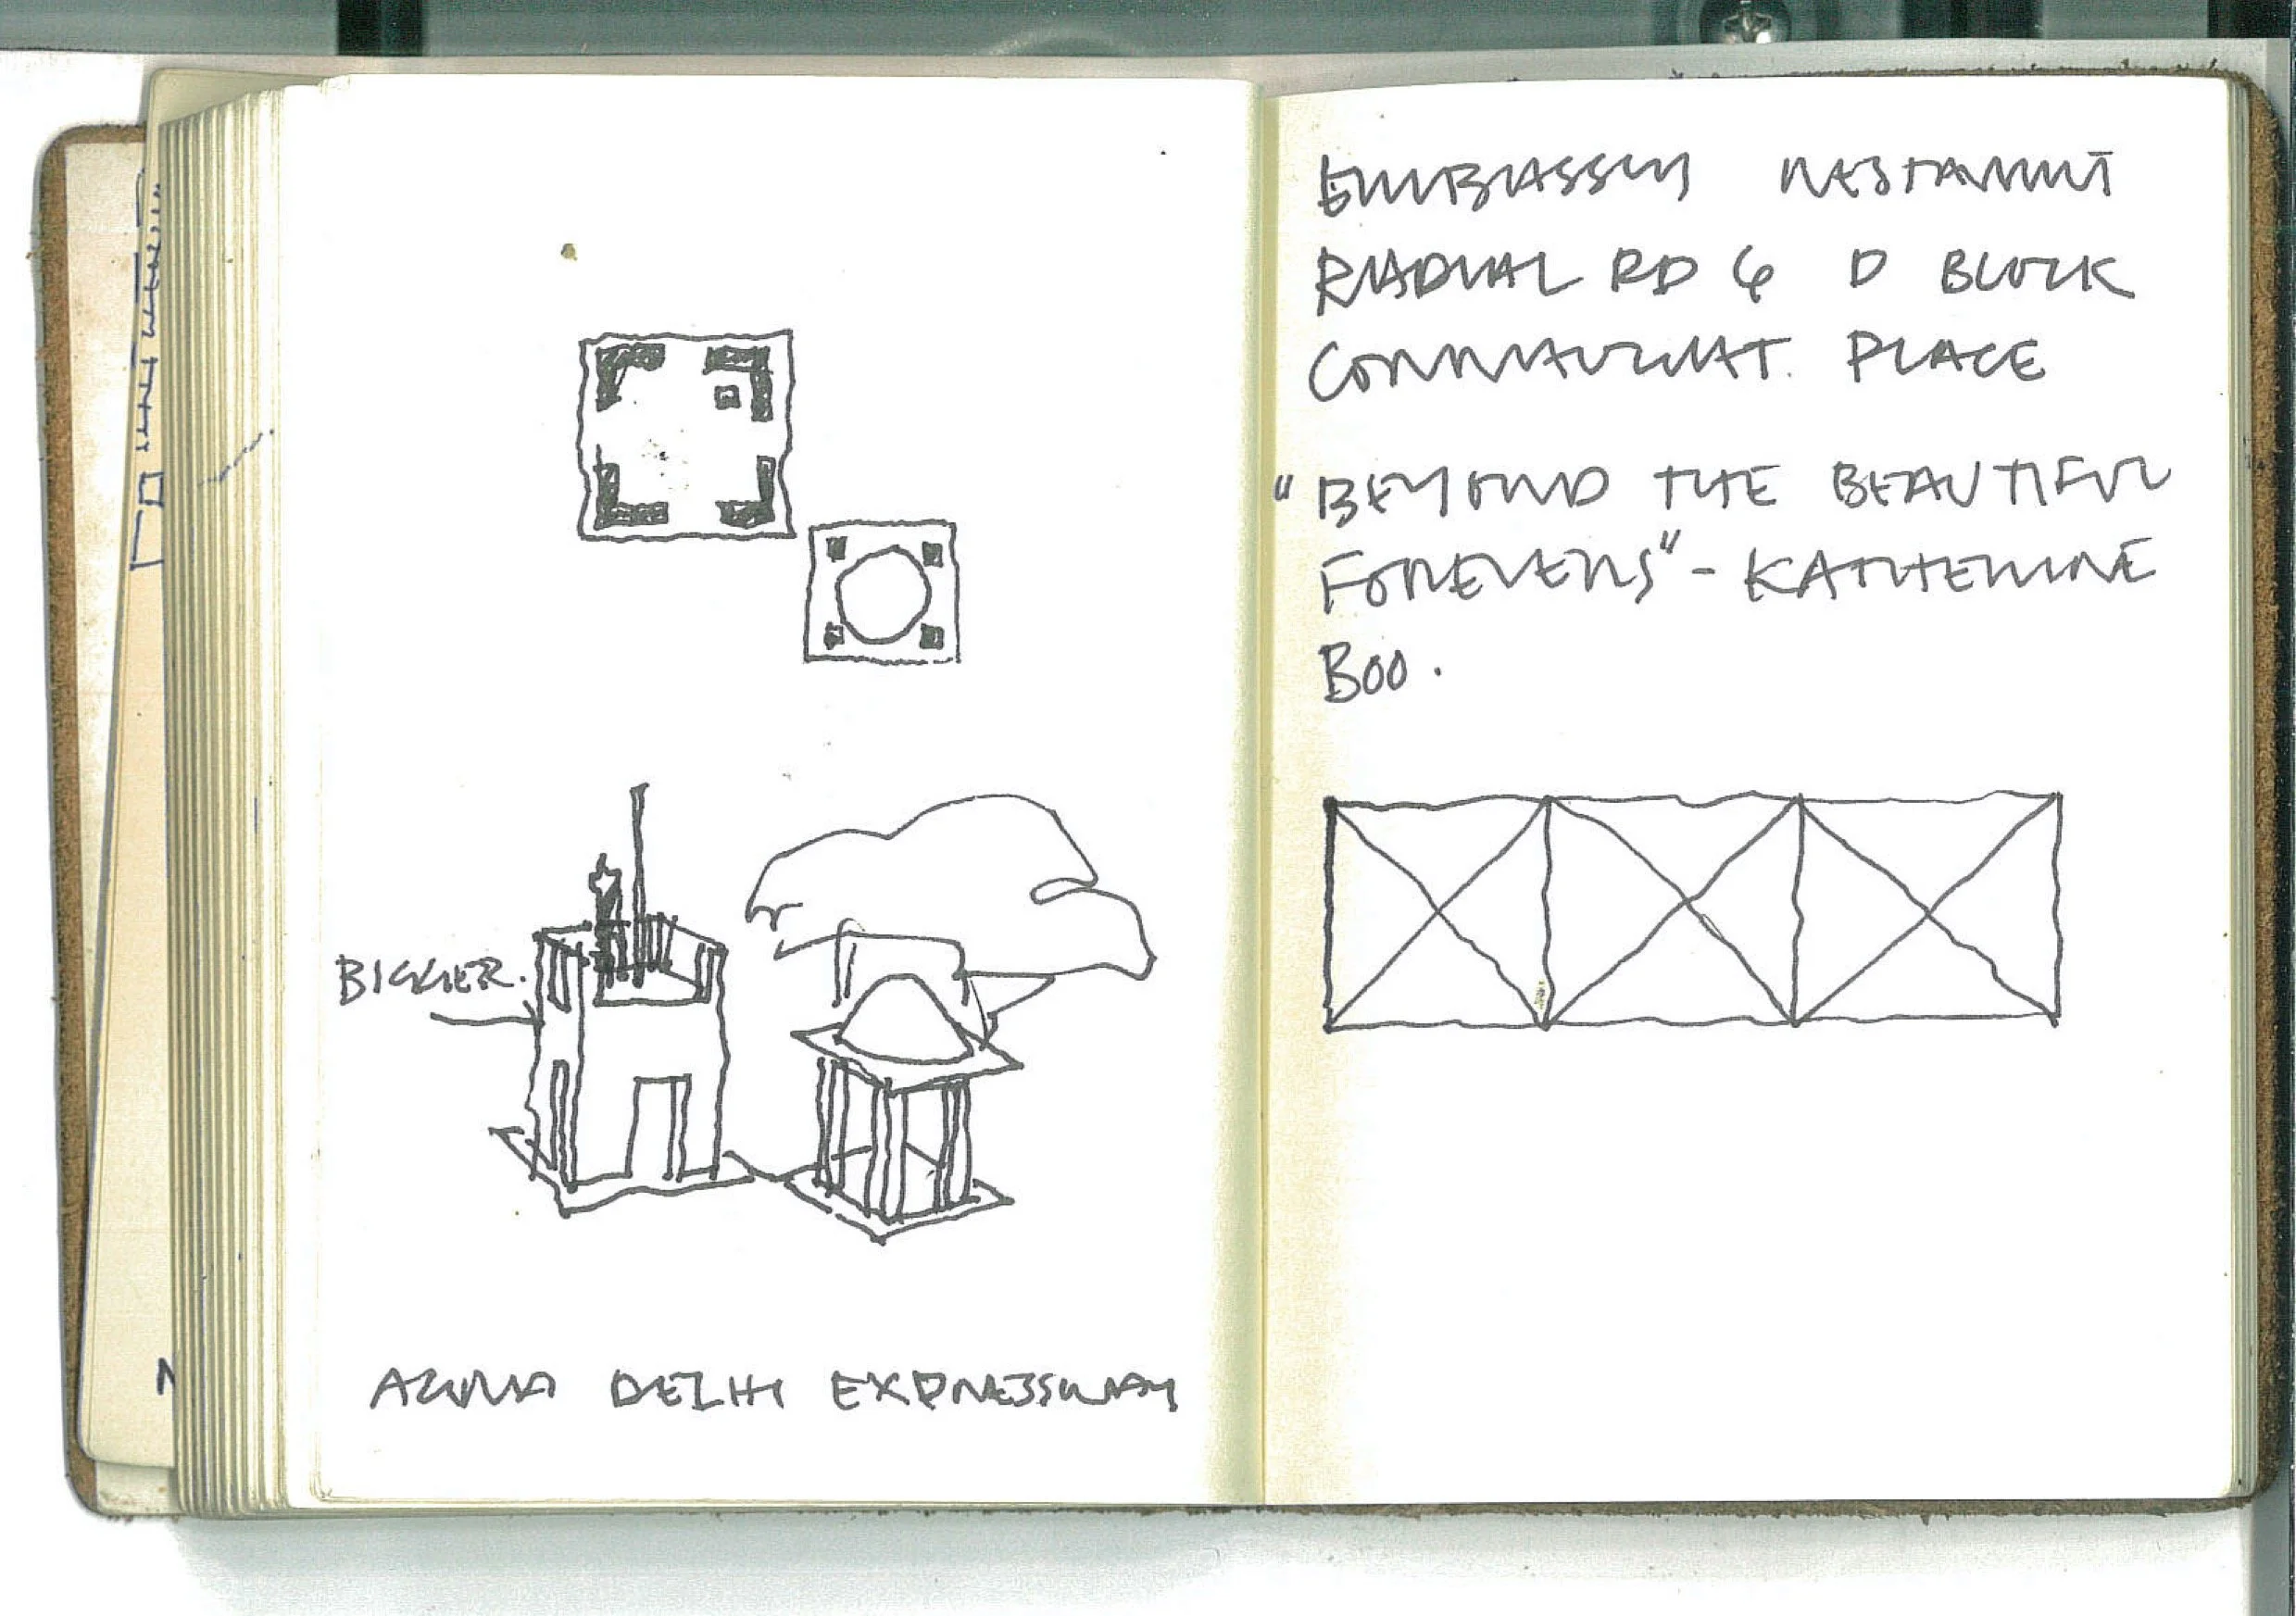 BIGGER.
AGRA DELHI EXPRESSWAY
EMBASSY RESTAURANT
RADIAL RD 6 D BLOCK
CONNAUGHT PLACE
"BEYOND THE BEAUTIFUL
FOREVERS" - KATHERINE
BOO.